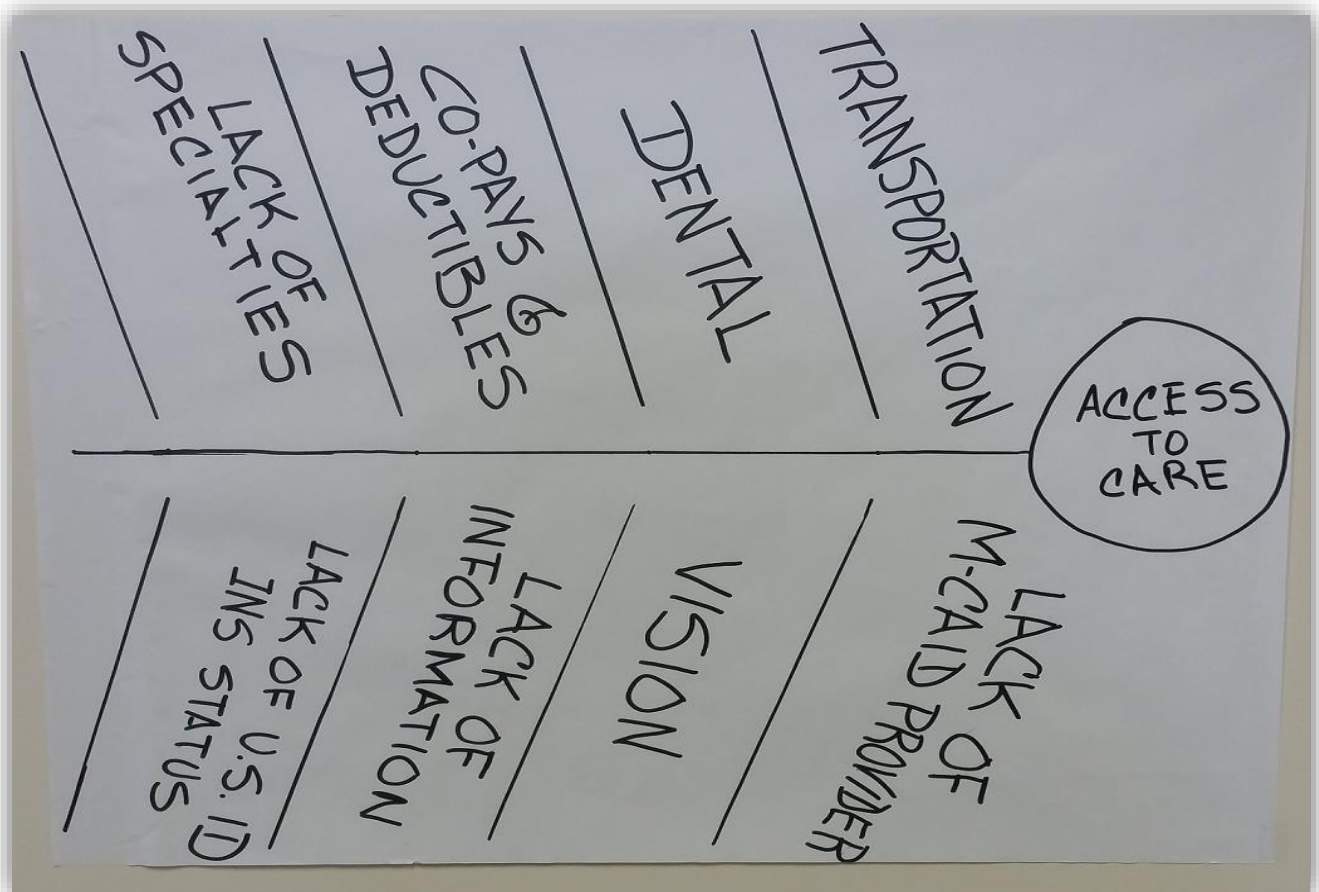 LACK OF
SPECIALTIES
CO-PAYS &
DEDUCTIBLES
DENTAL
TRANSPORTATION
ACCESS
TO
CARE
LACK OF U.S. ID
INS STATUS
LACK OF
INFORMATION
VISION
LACK OF
M-CAID PROVIDER